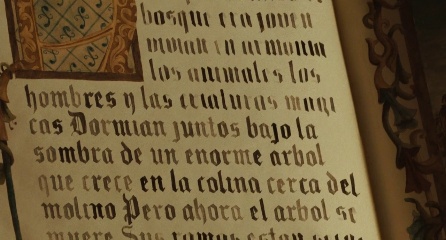 bosque era joven
vivian en armonia
los animales los
hombres y las criaturas magi
cas Dormian juntos bajo la
sombra de un enorme arbol
que crece en la colina cerca del
molino Pero ahora el arbol se
muere Sus ramas estan